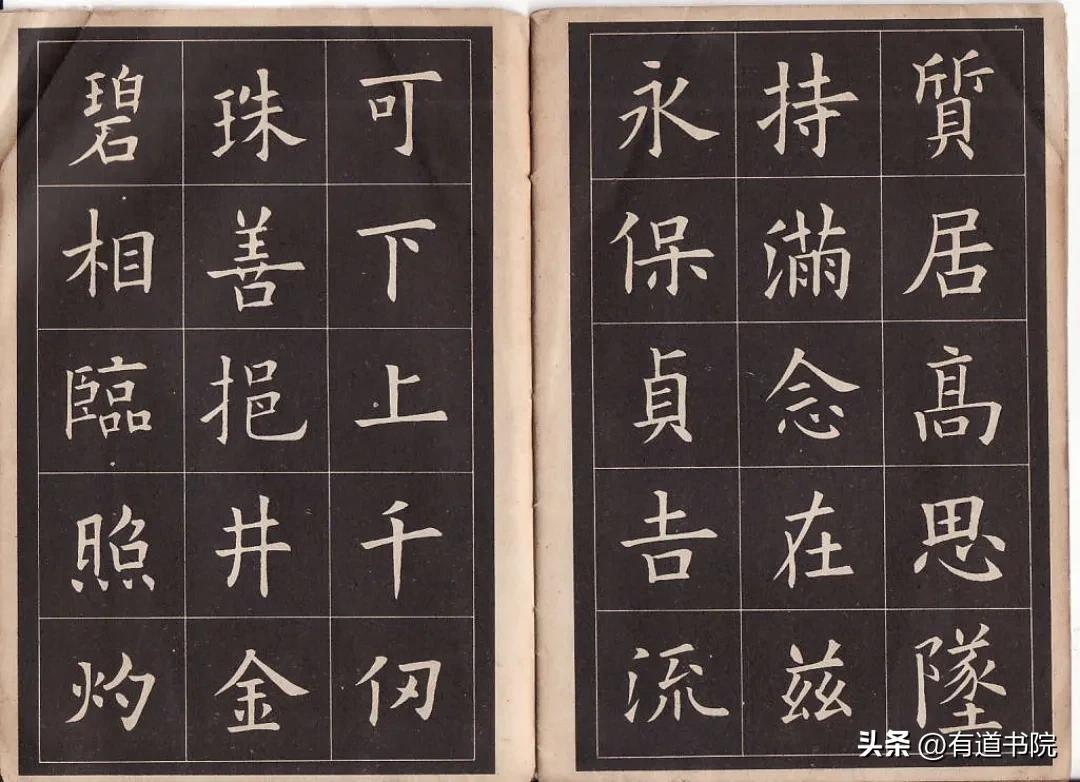 質居髙思墜
持滿念在茲
永保貞吉流
可下上千仞
珠善挹井金
碧相臨照灼
头条 @有道书院